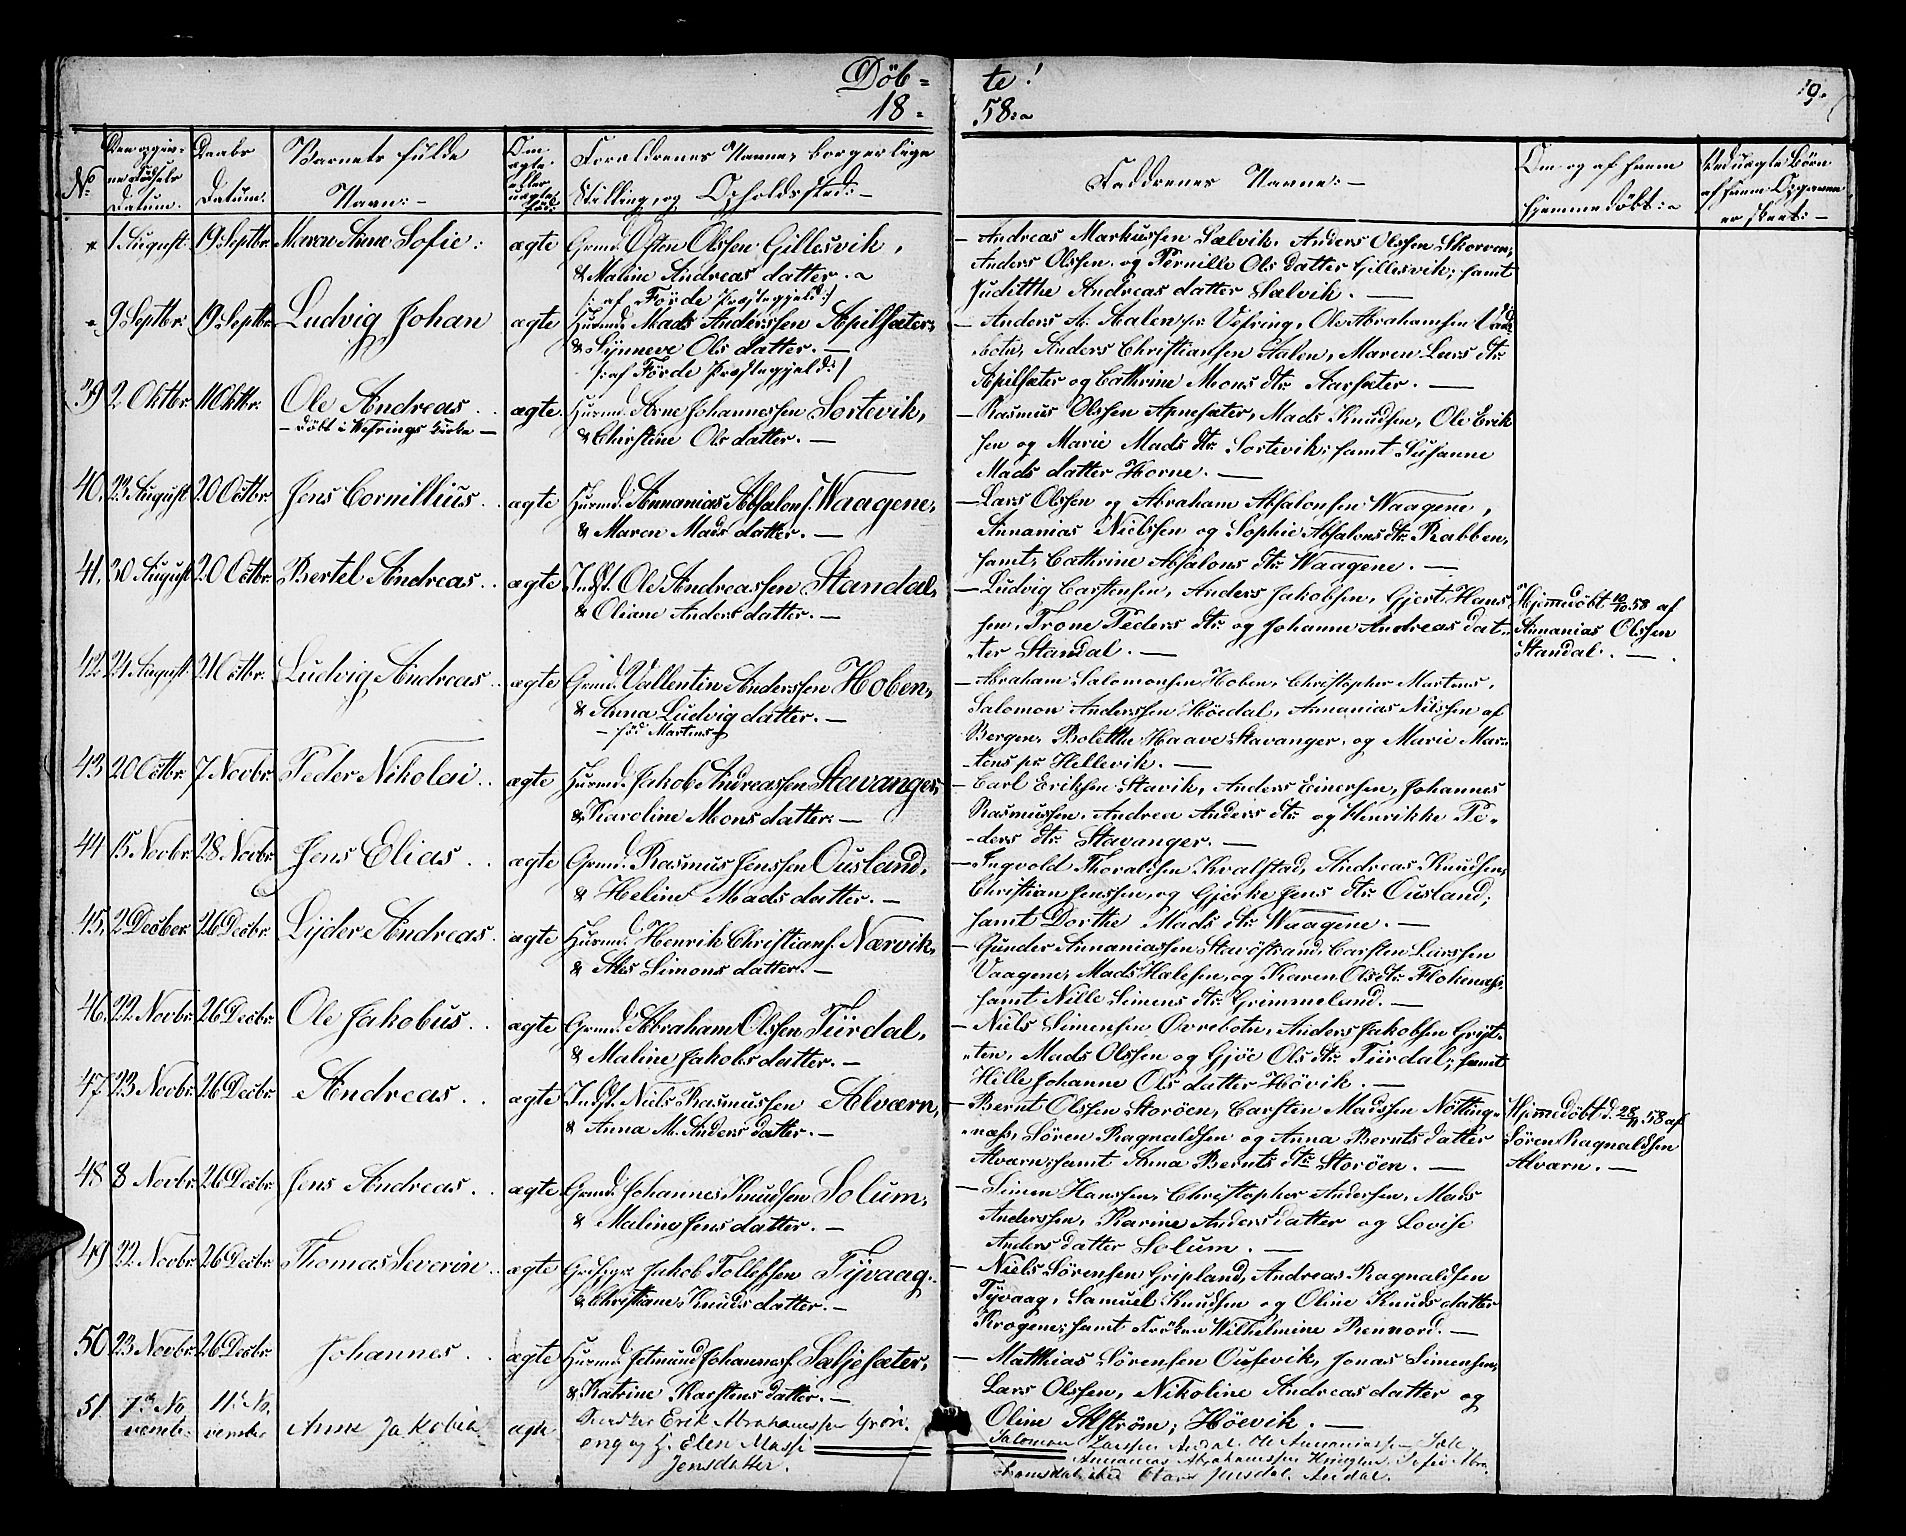 Döb=
18=
te!
58:
19.
No
Den opgiv=
ne Födsels
Datum.
Daabs
Datum:
Barnets fulde
Navn:-
Om
ægte
eller
uægte
föd:
Forældrenes Navne, borgerlige
Stilling, og Opholdssted:-
Faddrenes Navne:-
Om og af hvem
hjemmedöbt:
Ved uægte Börn
af hvem Opgaven
er skeet:-
1 August. 19 Septbr. Maren Anne Sofie: ægte Grmd. Østen Olssen Gillesvik,
& Maline Andreas datter.
/: af Förde Præstegjeld:/
- Andreas Markussen Sælvik, Anders Olssen Skorven,
Anders Olssen og Pernille Ols datter Gillesvik; samt
Juditthe Andreas datter Sælvik. -
9 Septbr. 19 Septbr. Ludvig Johan ægte Husmd. Mads Anderssen Apilsæter,
& Synneve Ols datter. -
/: af Förde Præstegjeld:/
- Anders A. Aalen pr Vefring, Ole Abrahamsen
botn, Anders Christianssen Aalen, Maren Lars dtr.
Apilsæter og Cathrine Mons dtr. Aarsæter. -
39 2 Oktbr. 11 Oktbr. Ole Andreas ægte Husmd. Arne Johannessen Sortevik,
- döbt i Wefrings Kirke -
& Chirstine Ols datter. -
- Rasmus Olssen Apnesæter, Mads Knudsen, Ole Erik
sen og Marie Mads dtr. Sortevik; samt Susanne
Mads datter Horne. -
40. 23 August 20 Octbr. Jens Cornillius ægte Husmd. Annanias Absalons. Waagene,
& Maren Mads datter. -
- Lars Olssen og Abraham Absalonsen Waagene,
Annanias Nielssen og Sophie Absalons dtr. Rabben,
samt Cathrine Absalons dtr. Waagene. -
41. 30 August 20 Octbr. Bertel Andreas ægte Indst. Ole Andreassen Standal,
& Oliane Anders datter. -
- Ludvig Carstensen, Anders Jakobsen, Gjert Hans
sen, Trone Peders dtr. og Johanne Andreas dat=
ter Standal. -
Hjemedöbt 10/10 58 af
Annanias Olssen
Standal. -
42 24 August 21 Octbr. Ludvig Andreas ægte Grmd. Vallentin Anderssen Hoben,
& Anna Ludvig datter. -
- föd Martens -
- Abraham Salomonsen Hoben, Christopher Martens,
Salomon Anderssen Höedal, Annanias Nilssen af
Bergen, Bolitthe Haave Stavanger, og Marie Mar=
tens pr Hellevik. -
43 20 Octbr. 7 Novbr. Peder Nikolai ægte Husmd. Jakob Andreassen Stavanger,
& Karoline Mons datter. -
- Carl Eriksen Stavik, Anders Einersen, Johannes
Rasmussen, Andrea Anders dtr. og Henrikke Pe=
ders dtr. Stavanger. -
44 15 Novbr. 28 Novbr. Jens Elias ægte Grmd. Rasmus Jenssen Ousland,
& Heline Mads datter. -
- Ingvold Thoralssen Kvalstad, Andreas Knudsen,
Christian Jenssen, og Gjerke Jens dtr. Ousland;
samt Dorthe Mads dtr. Waagene. -
45. 2 Decbr. 26 Decbr. Lyder Andreas ægte Husmd. Henrik Christians. Nærvik,
& Ales Simons datter. -
- Gunder Annaniassen Staröstrand, Carsten Larssen
Vaagene, Mads Halesen, og Karen Ols dtr. Flokenæs,
samt Nille Simens dtr. Grimmeland. -
46. 22 Novbr. 26 Decbr. Ole Jakobus ægte Grmd. Abraham Olssen Türdal,
& Maline Jakobs datter. -
- Niels Simensen Övrebotn, Anders Jakobsen Gryt=
ten, Mads Olssen og Gjöe Ols dtr. Türdal; samt
Hille Johanne Ols datter Hövik. -
47 23 Novbr. 26 Decbr. Andreas ægte Indst. Niels Rasmussen Alværn,
& Anna M. Anders datter. -
- Bernt Olssen Storöen, Carsten Madssen Nötting=
næss, Sören Ragnaldsen og Anna Bernts datter
Alvarn; samt Anna Bernts dtr. Storöen. -
Hjemedöbt d. 28/11 58 af
Sören Ragnaldsen
Alvarn. -
48 8 Novbr. 26 Decbr. Jens Andreas ægte Grmd. Johannes Knudsen Solum,
& Maline Jens datter. -
- Simen Hanssen, Christopher Andersen, Mads
Anderssen, Karine Anders datter og Lovise
Anders datter Solum. -
49 22 Novbr. 26 Decbr. Thomas Severin ægte Jakob Tollefssen Tyvaag,
& Christiane Knuds datter. -
- Niels Sörensen Gripland, Andreas Ragnaldsen
Tyvaag, Samuel Knudsen og Oline Knuds datter
Krogene; samt Fröken Wilhelmine Rennord. -
50 23 Novbr. 26 Decbr. Johannes ægte Husmd. Jetmund Johanness. Sæljesæter,
& Katrine Karstens datter. -
- Matthias Sörensen Ousevik, Jonas Simensen,
Lars Olssen, Nikoline Andreas datter og
Oline Alström, Höevik. -
51. 7de No 11te No Anne Jakobia ægte Erik Abrahamssen Grön
vembr. vember
eng og H. Elen Masse
Jensdatter.
Salomon Larssen Ole Annaniassen Sæle,
Annanias Abrahamssen Sofie Abra
hamsdatter Jensdat. Aredal.